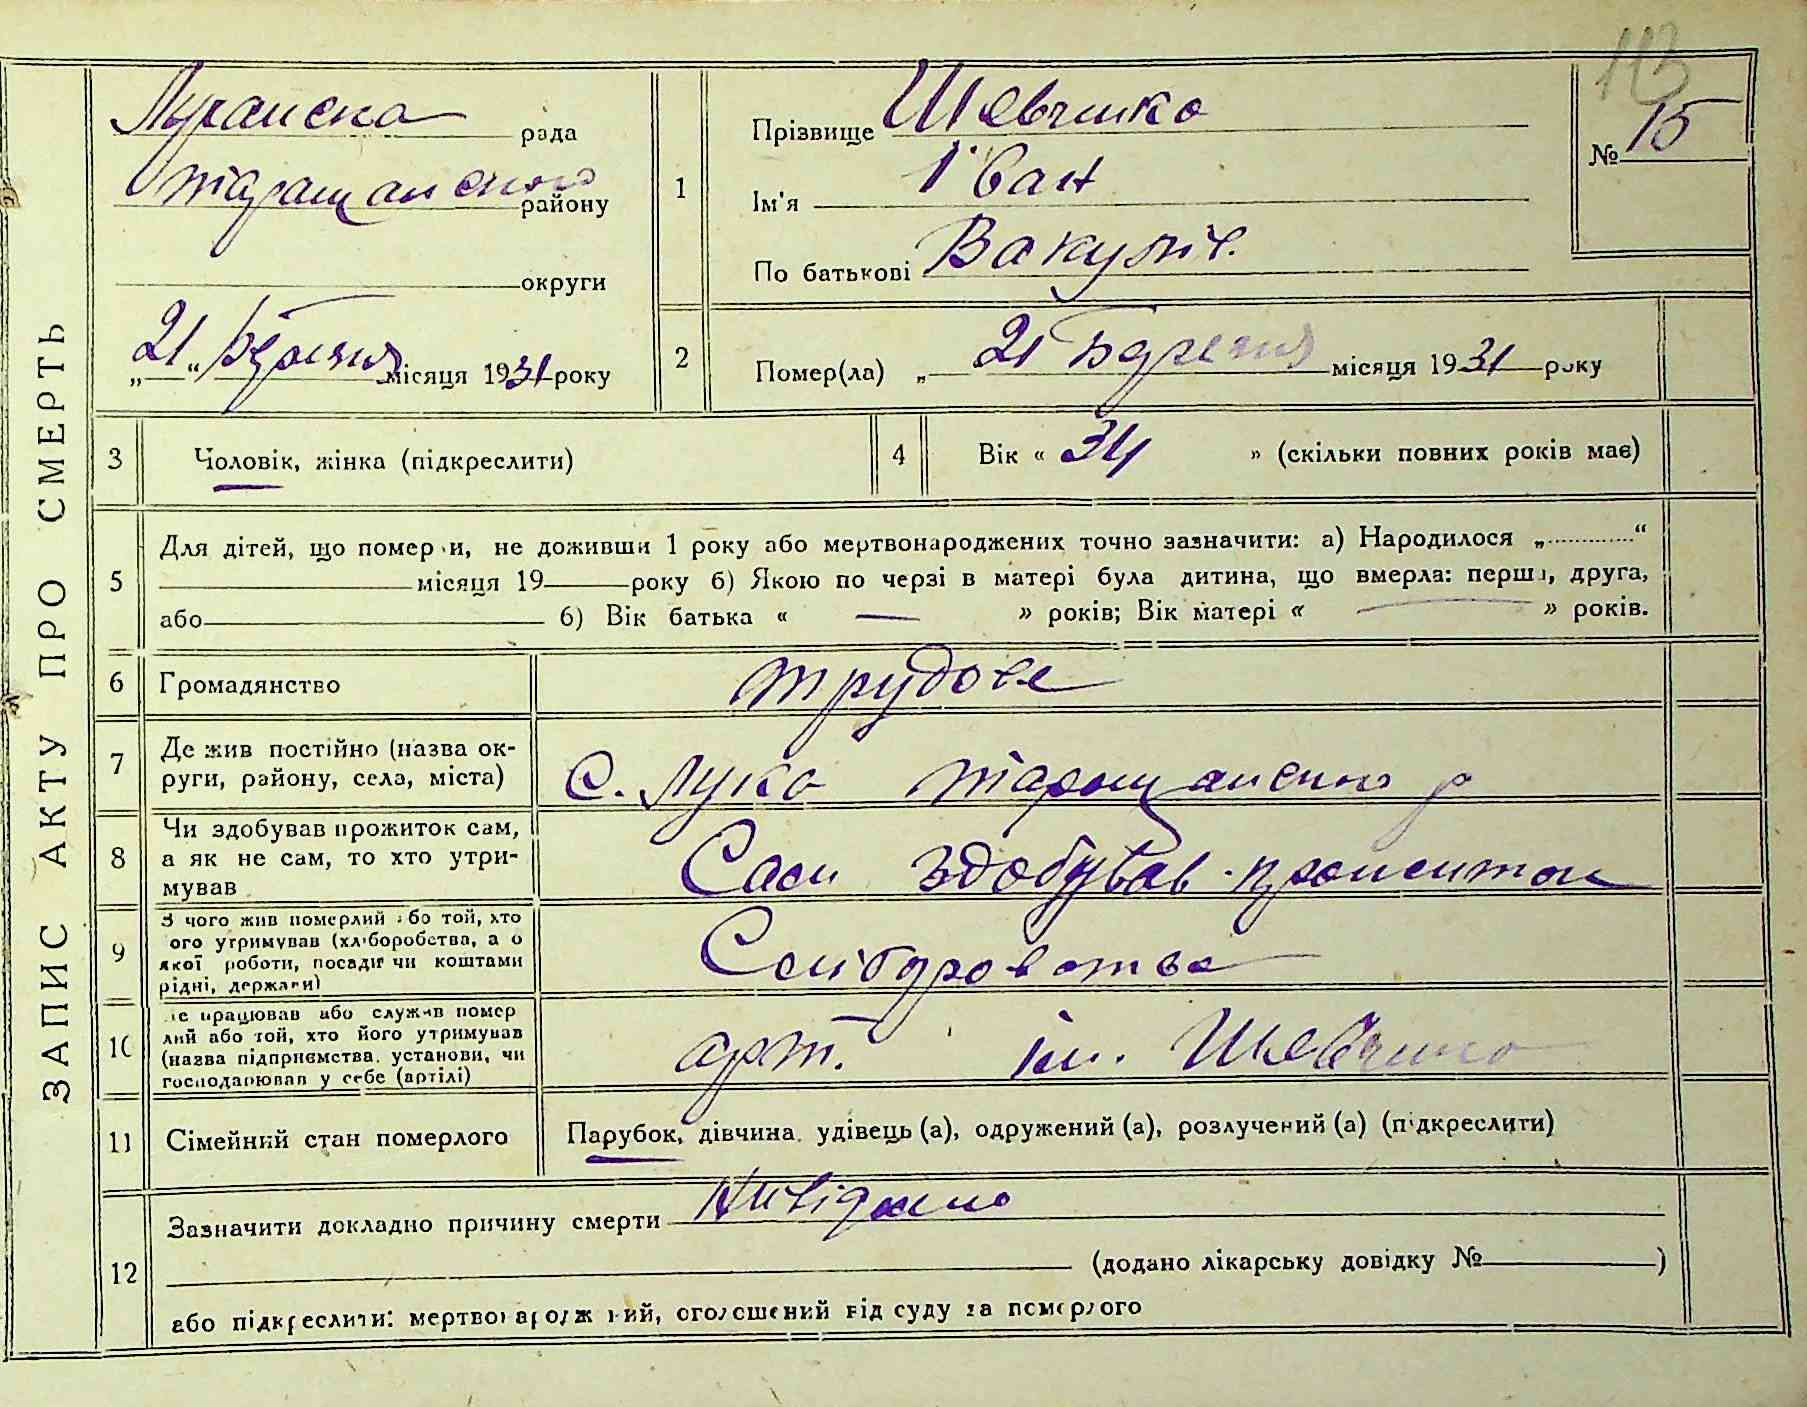 ЗАПИС АКТУ ПРО СМЕРТЬ
113
№ 15
Луканска рада
Таращанського району
округи
„21“ березня місяця 1931 року
1
Прізвище Шевченко
Ім'я Іван
По батькові Вакулів.
2
Помер(ла) „ 21 березня місяця 1931 року
3
Чоловік, жінка (підкреслити)
4
Вік « 34 » (скільки повних років має)
5
Для дітей, що померли, не доживши 1 року або мертвонароджених точно зазначити: а) Народилося „............“
місяця 19 року б) Якою по черзі в матері була дитина, що вмерла: перша, друга,
або б) Вік батька « — » років; Вік матері « — » років.
6
Громадянство
трудове
7
Де жив постійно (назва ок-
руги, району, села, міста)
с. Лука Таращанського р
8
Чи здобував прожиток сам,
а як не сам, то хто утри-
мував
Сам здобував прожиток
9
З чого жив померлий або той, хто
ого утримував (хліборобства, а о
якої роботи, посади чи коштами
рідні, держави)
10
е працював або служив помер
лий або той, хто його утримував
(назва підприємства, установи, чи
господарював у себе (артілі)
арт. ім. Шевченко
11
Сімейний стан померлого
Парубок, дівчина, удівець (а), одружений (а), розлучений (а) (підкреслити)
12
Зазначити докладно причину смерти Невідомо
(додано лікарську довідку № )
або підкреслити: мертвонароджений, оголошений від суду за померлого